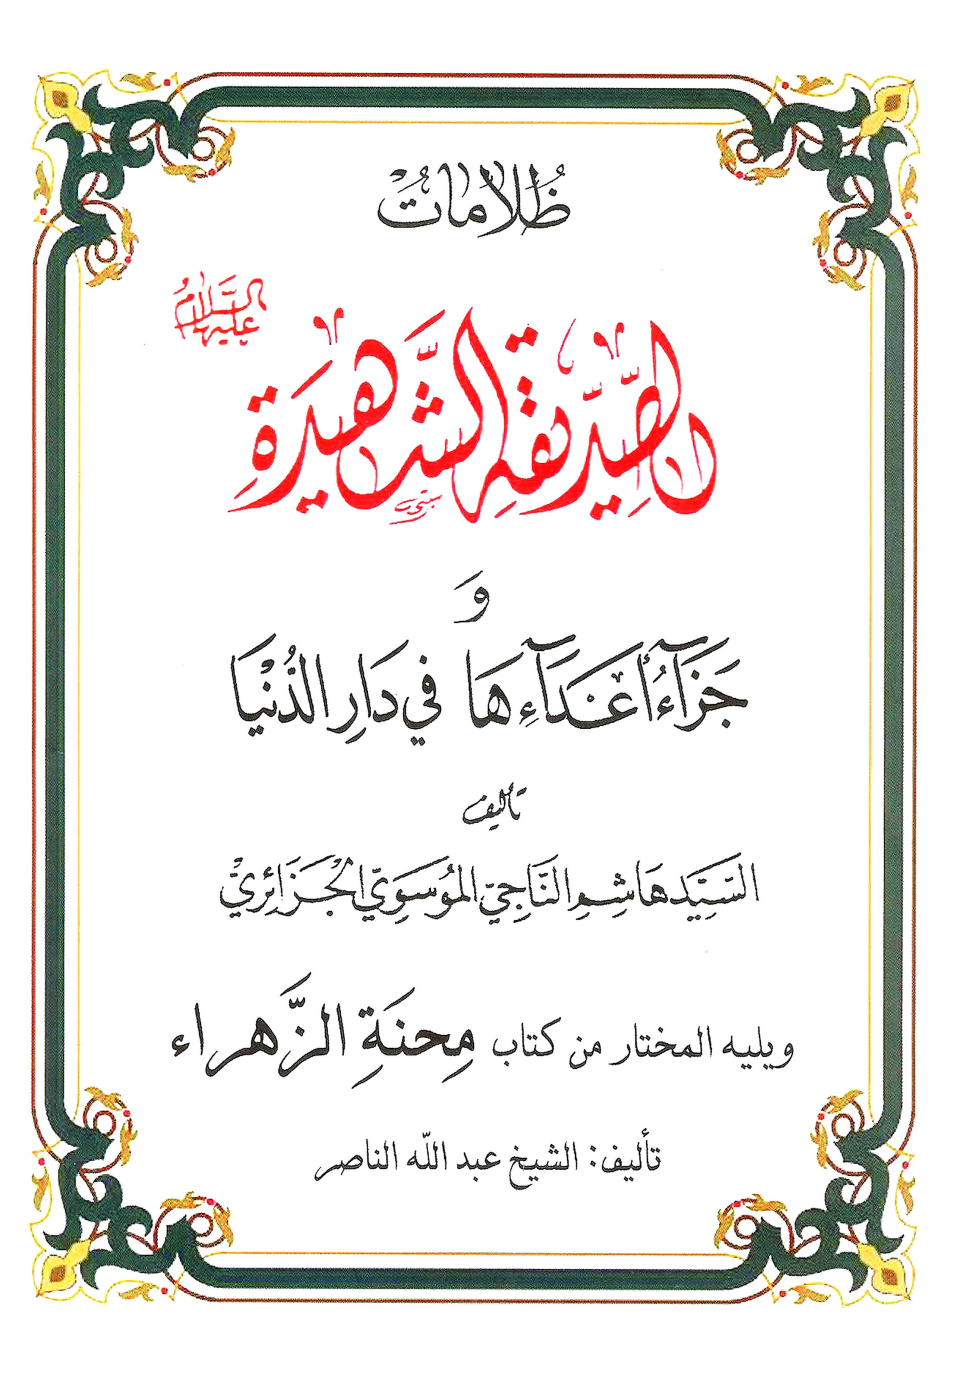 ظُلَامَاتُ
عليها السَّلامُ
الصِّدِّيقَةِ الشَّهِيدَةِ
وَ
جَزَآءُ أَعْدَآءِهَا فِي دَارِ الدُّنْيَا
تأليف
السَّيِّد هَاشِمِ النَّاجِيّ المُوْسَوِيّ الْجَزَائِرِيّْ
ويليه المختار من كتاب مِحنَةِ الزَّهراء
تأليف: الشيخ عبد اللّه الناصر